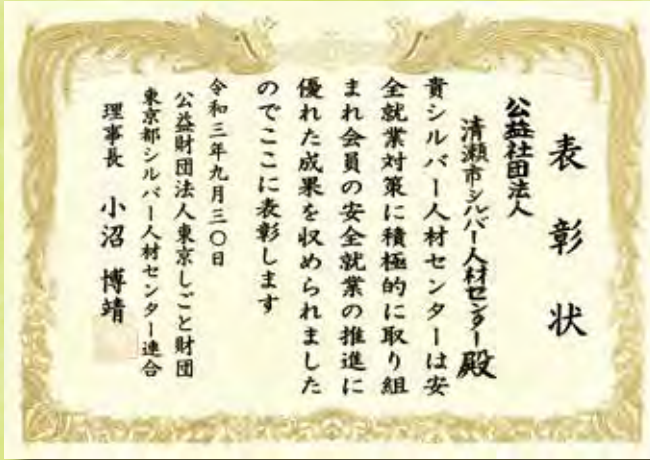 表彰状
公益社団法人
清瀬市シルバー人材センター殿
貴シルバー人材センターは安
全就業対策に積極的に取り組
まれ会員の安全就業の推進に
優れた成果を収められました
のでここに表彰します
令和三年九月三〇日
公益財団法人東京しごと財団
東京都シルバー人材センター連合
理事長 小沼博靖